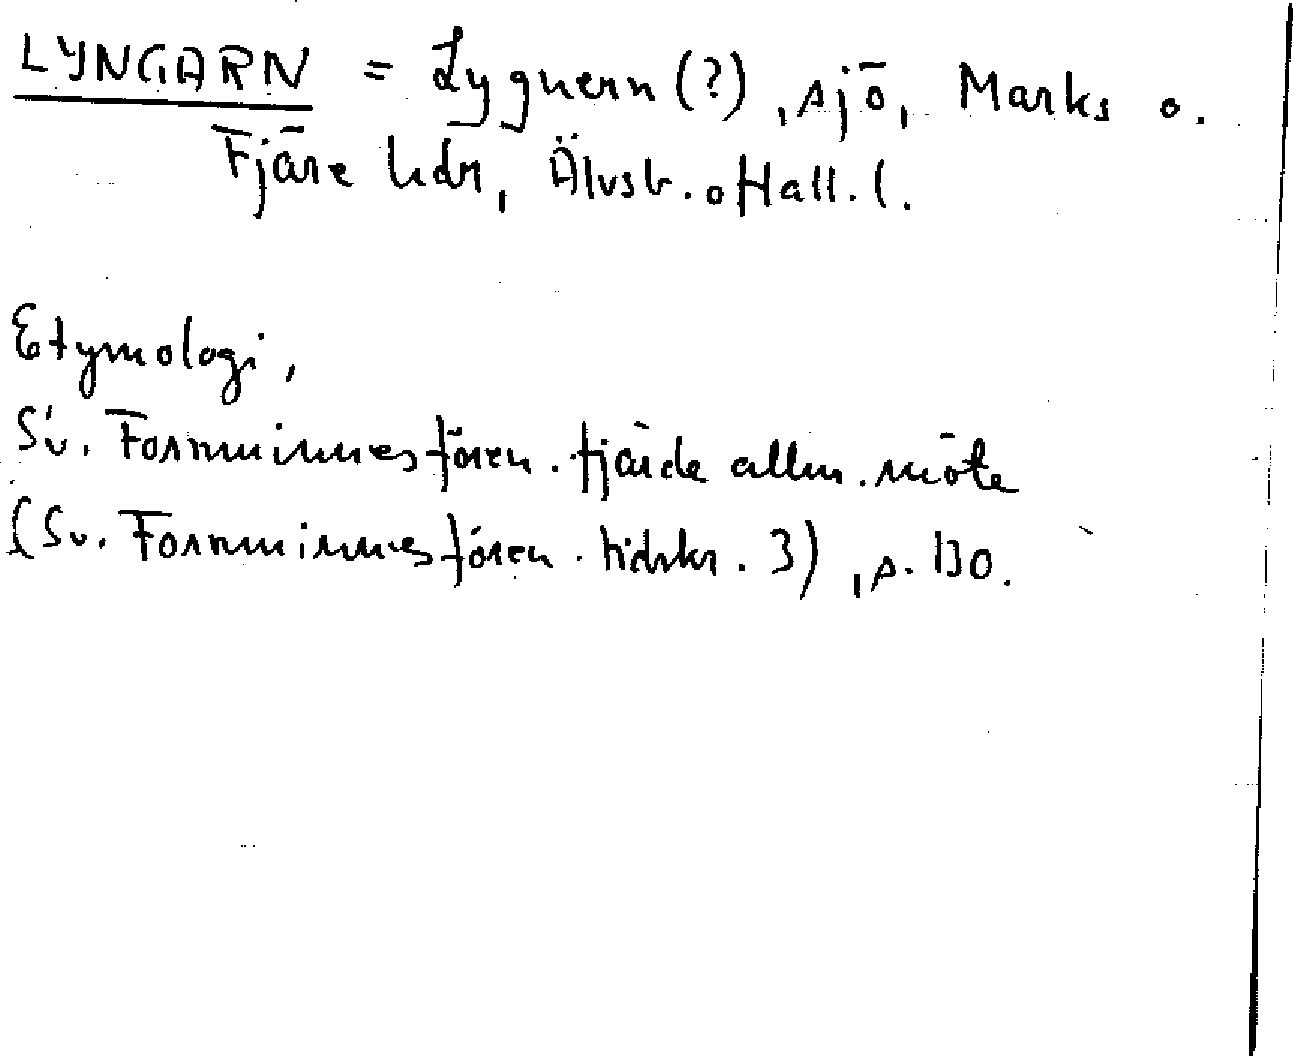 LYNGARN = Lygnern (?), sjö, Marks o.
Fjäre hdr, Älvsb. o Hall. l.
Etymologi,
Sv. Fornminnesfören. fjärde allm. möte
(Sv. Fornminnesfören. tidskr. 3), s. 130.